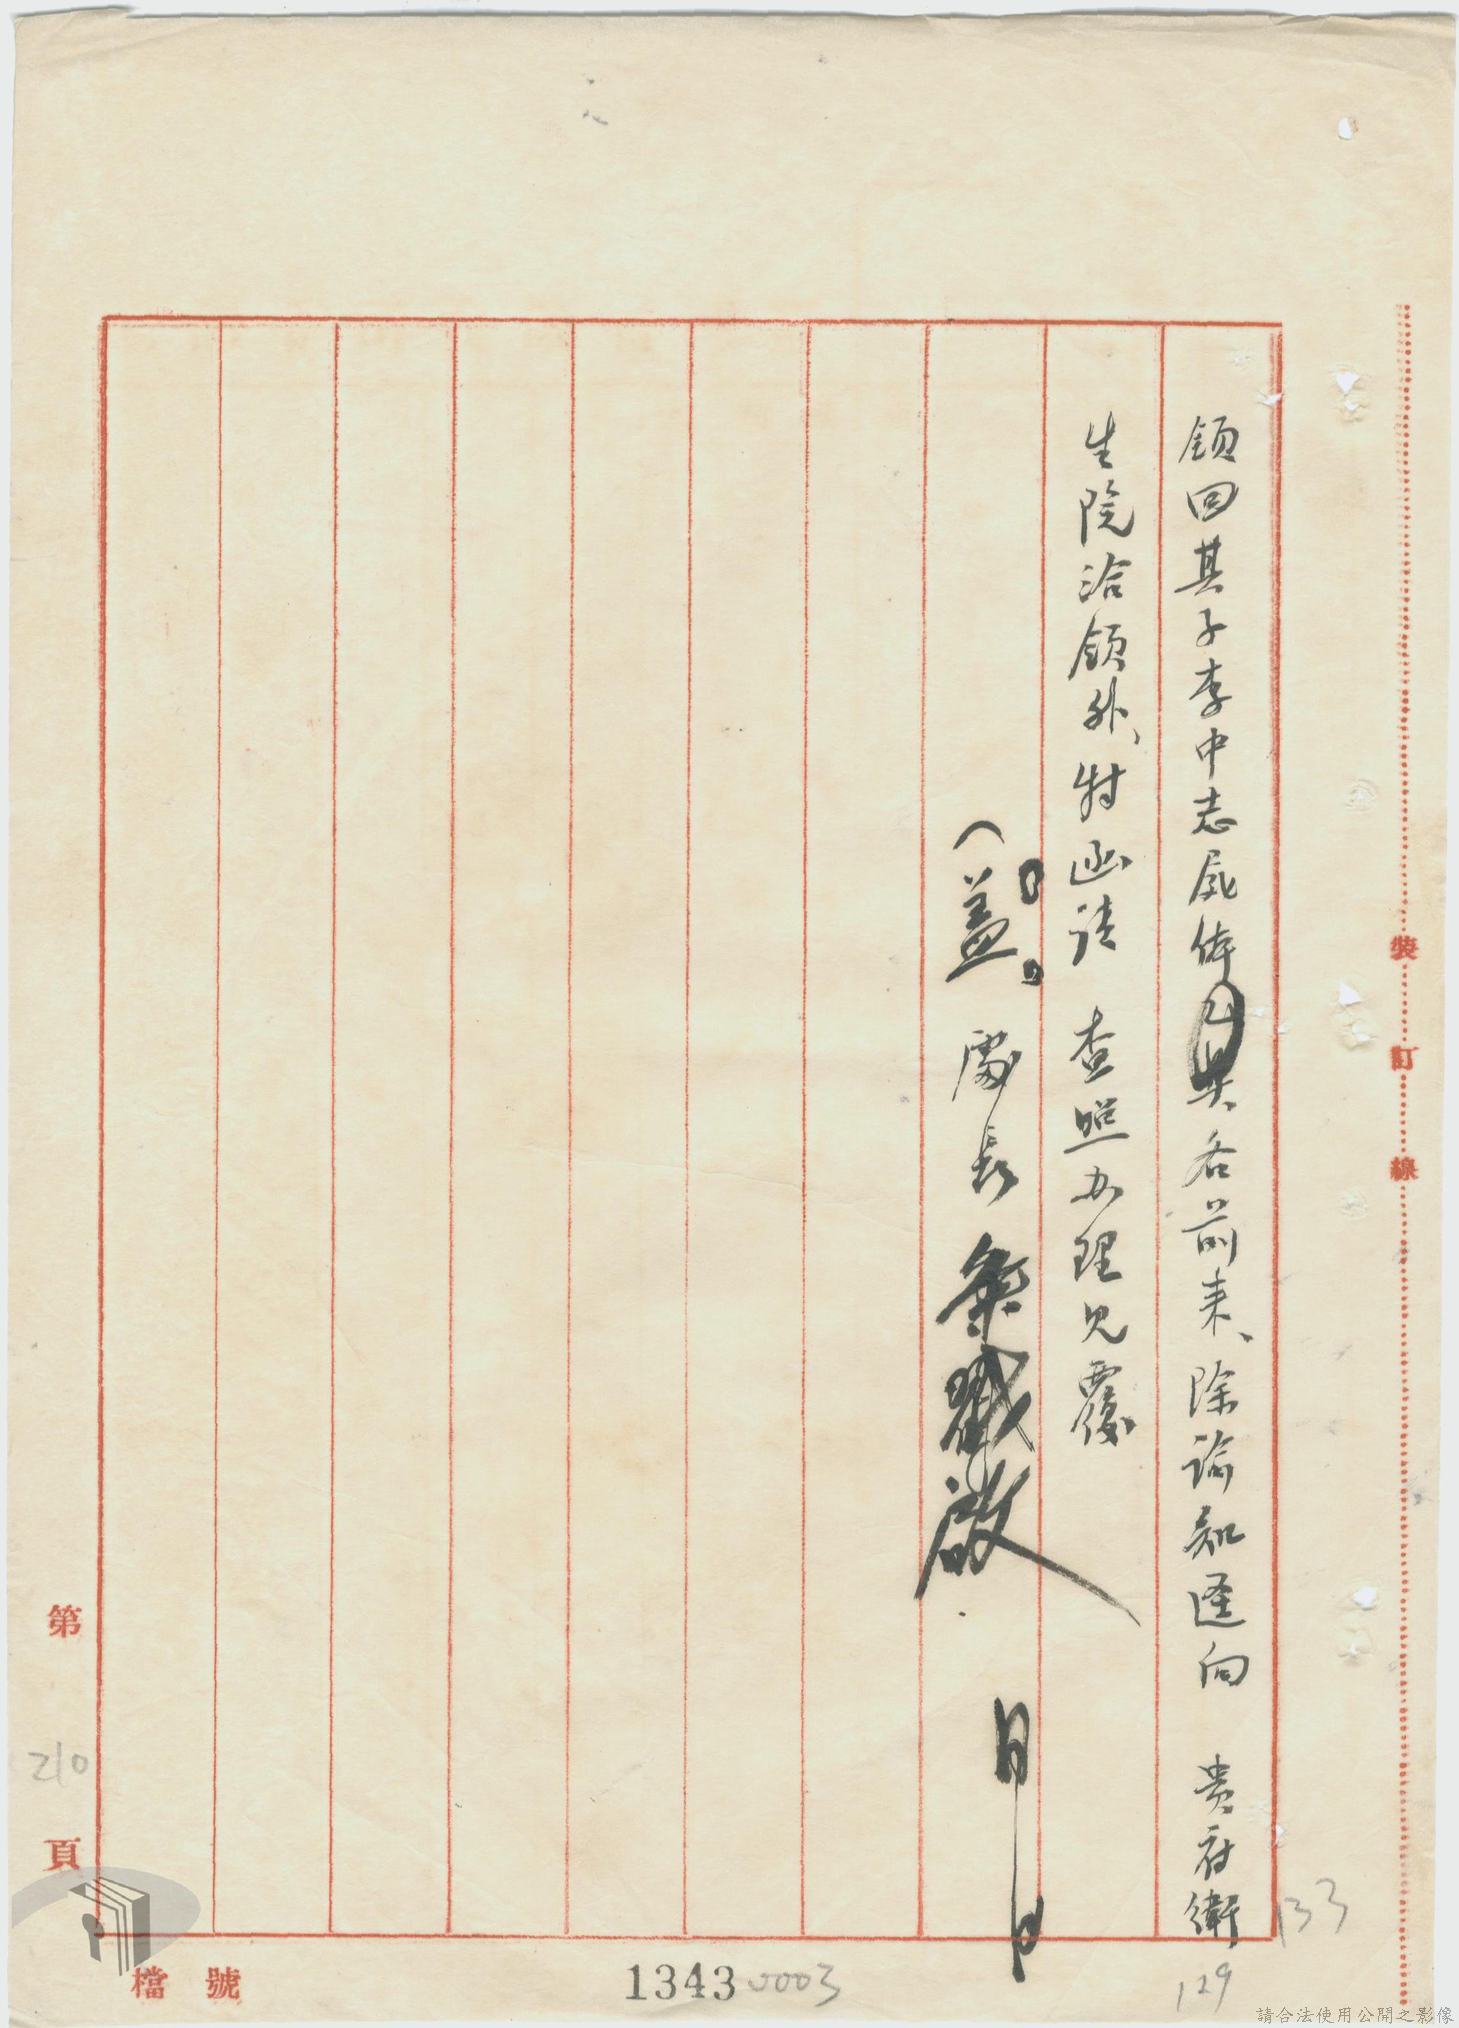 領回其子李中志屍体具呈前来、除諭知逕向　貴府衛
生院洽領外、特函請　查照办理見覆
（蓋）處長　啟
月　日
裝訂線
第210頁
檔號
1343 0003
133
129
請合法使用公開之影像